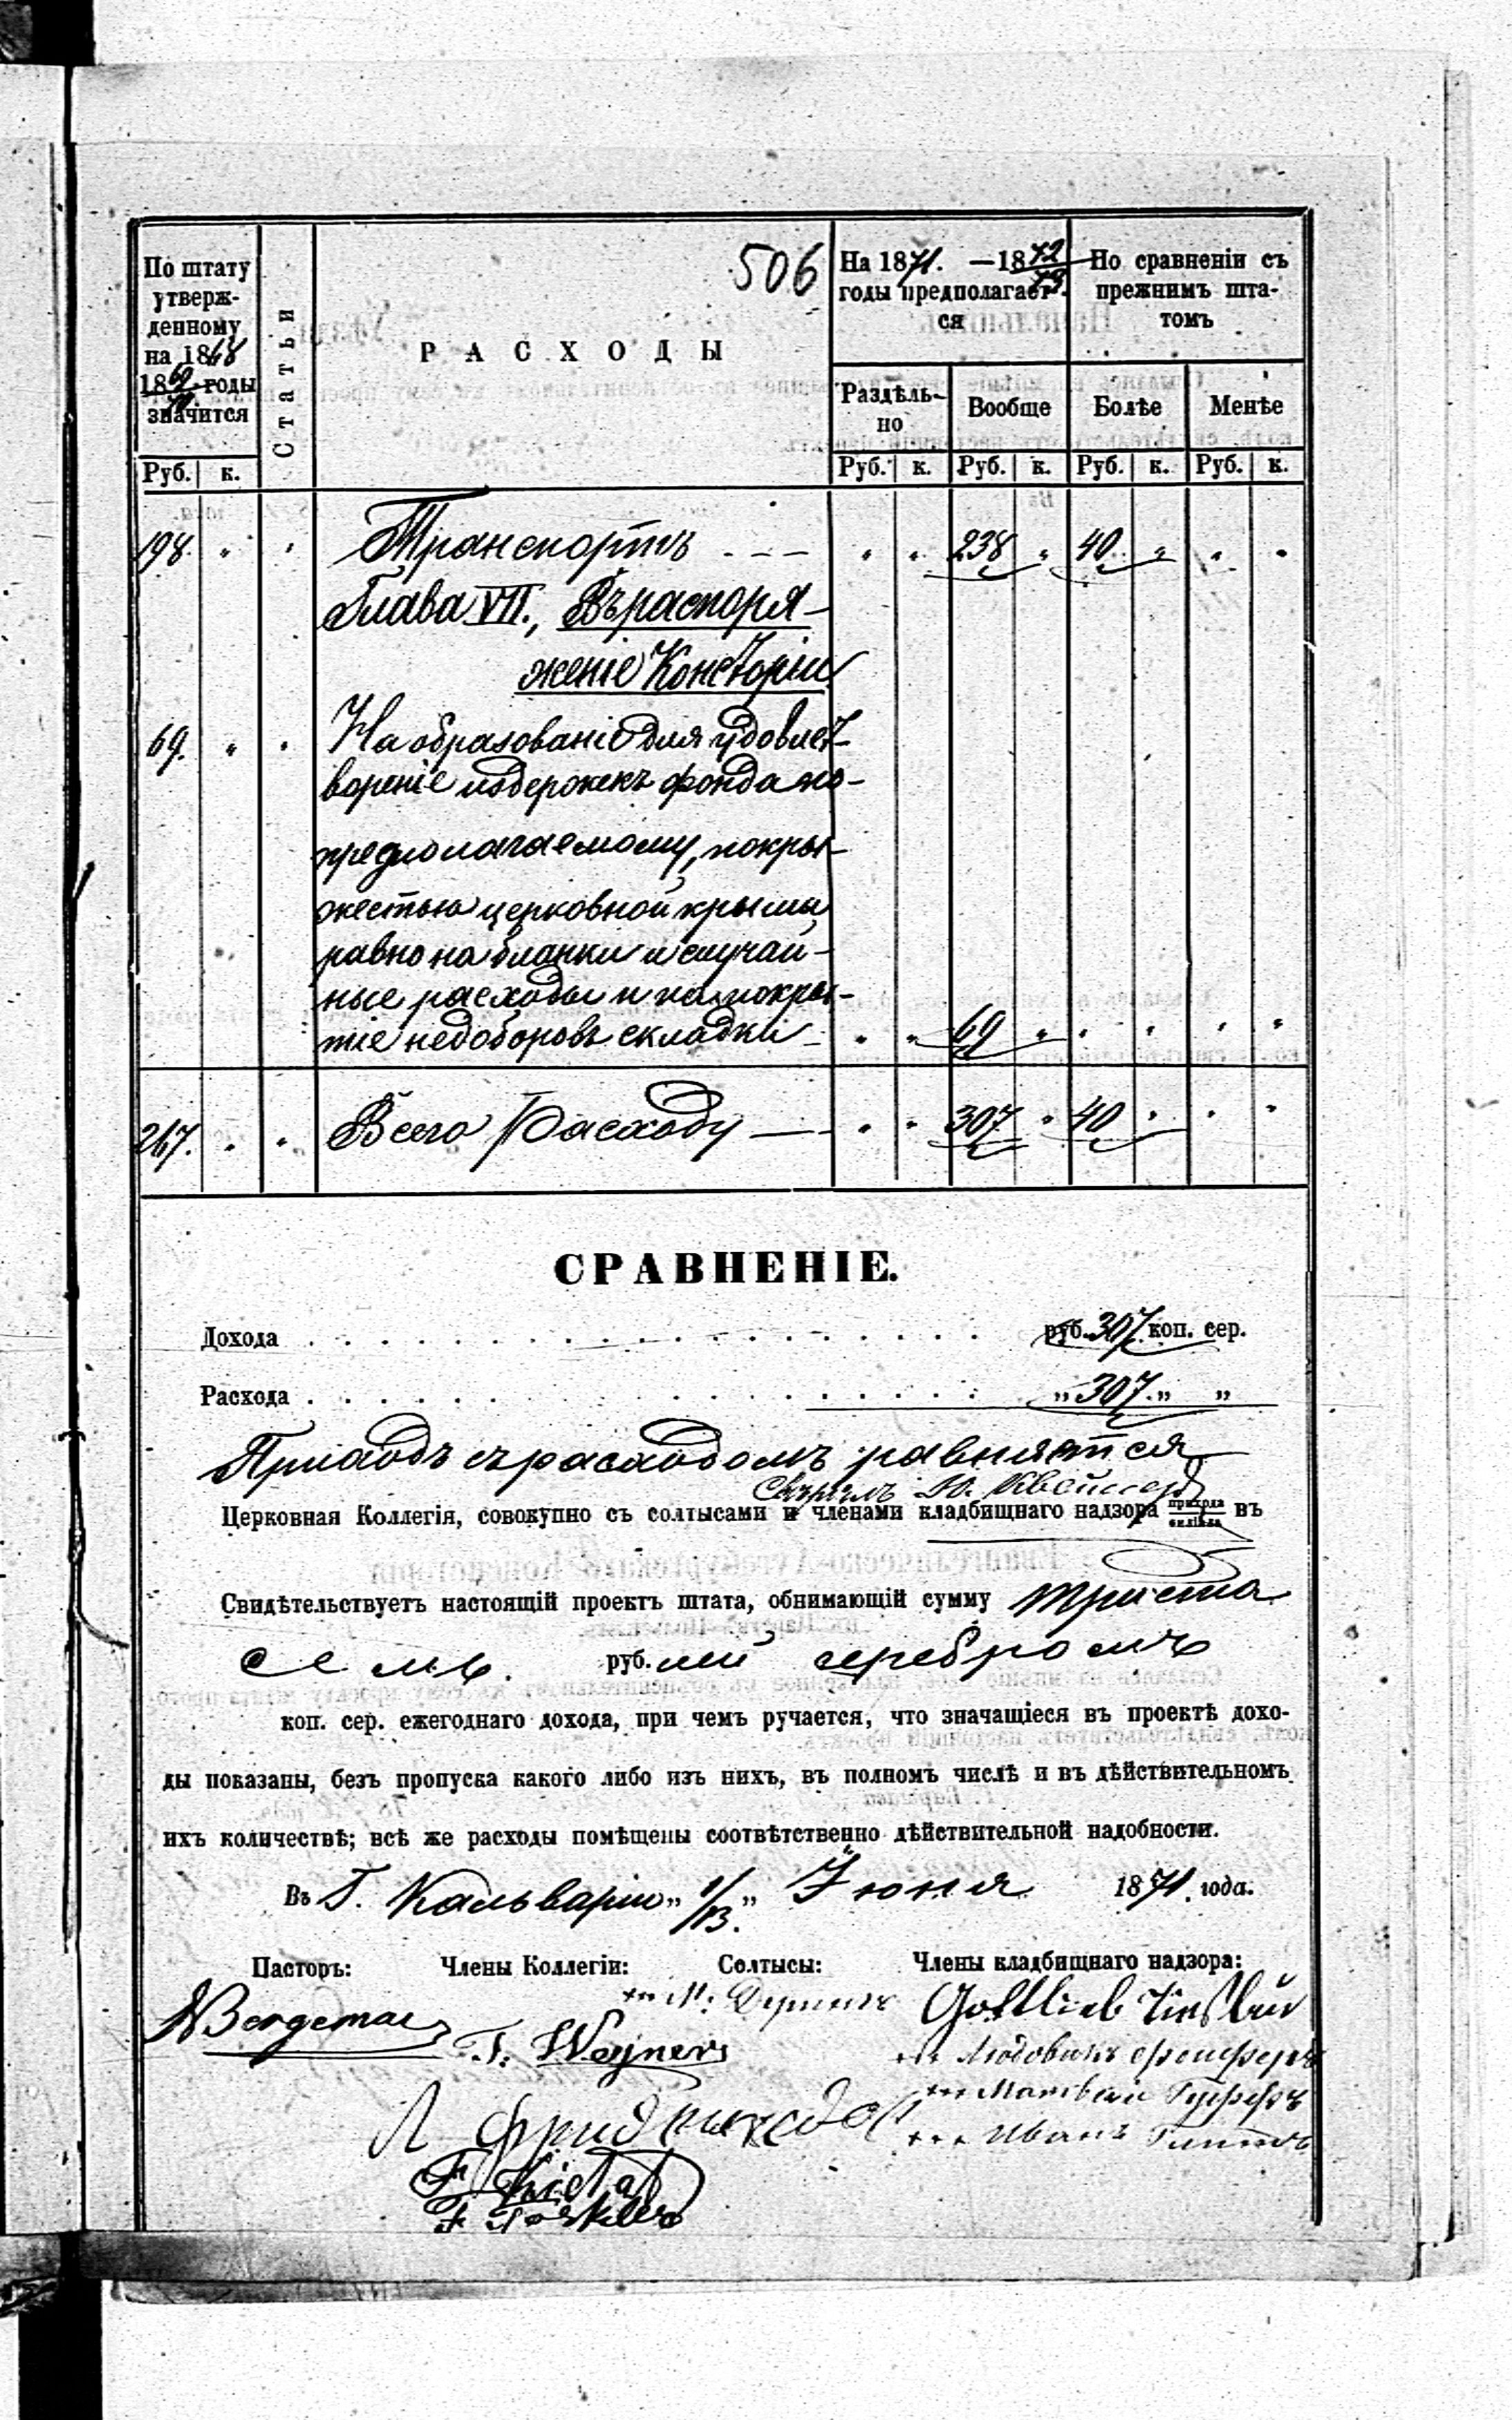 506
По штату утверж-
денному
на 1868
1869/70 годы
значится
Статьи
РАСХОДЫ
На 1871. —1872/73
годы предполагает-
ся
По сравненiи съ
прежнимъ шта-
томъ
Раздѣль-
но
Вообще
Болѣе
Менѣе
Руб. к. Руб. к. Руб. к. Руб. к. Руб. к.
198. „ „ Транспортъ - - - „ „ 238 „ 40 „ „ „
Глава VII., Въ распоря-
женiе Консторiи
69. „ „ На образованiе для удовлет-
воренiе издержекъ фонда по-
предполагаемому, покры-
жестью церковной крыши,
равно на бланки и случай-
ные расходы и на покры-
тiе недоборовъ складки - „ „ 69 „ „ „ „ „
267. „ „ Всего Расходу — „ „ 307 „ 40 „ „ „
СРАВНЕНIЕ.
Дохода . . . руб. 307 коп. сер.
Расхода . . . „ 307. „ „
Приходъ съ расходомъ равняется
Церковная Коллегiя, совокупно съ солтысами и членами кладбищнаго надзора прихода/филiала въ
Свидѣтельствуетъ настоящiй проектъ штата, обнимающiй сумму триста
семь. руб.лей серебромъ
коп. сер. ежегоднаго дохода, при чемъ ручается, что значащiеся въ проектѣ дохо-
ды показаны, безъ пропуска какого либо изъ нихъ, въ полномъ числѣ и въ дѣйствительномъ
ихъ количествѣ; всѣ же расходы помѣщены соотвѣтственно дѣйствительной надобности.
Въ Г. Кальварiи „ 1/13. „ Iюня 1871. года.
Пасторъ: Члены Коллегiи: Солтысы: Члены кладбищнаго надзора:
Gottlieb
F. Wegner
+++ Людовикъ
+++ Матвѣй
+++ Иванъ